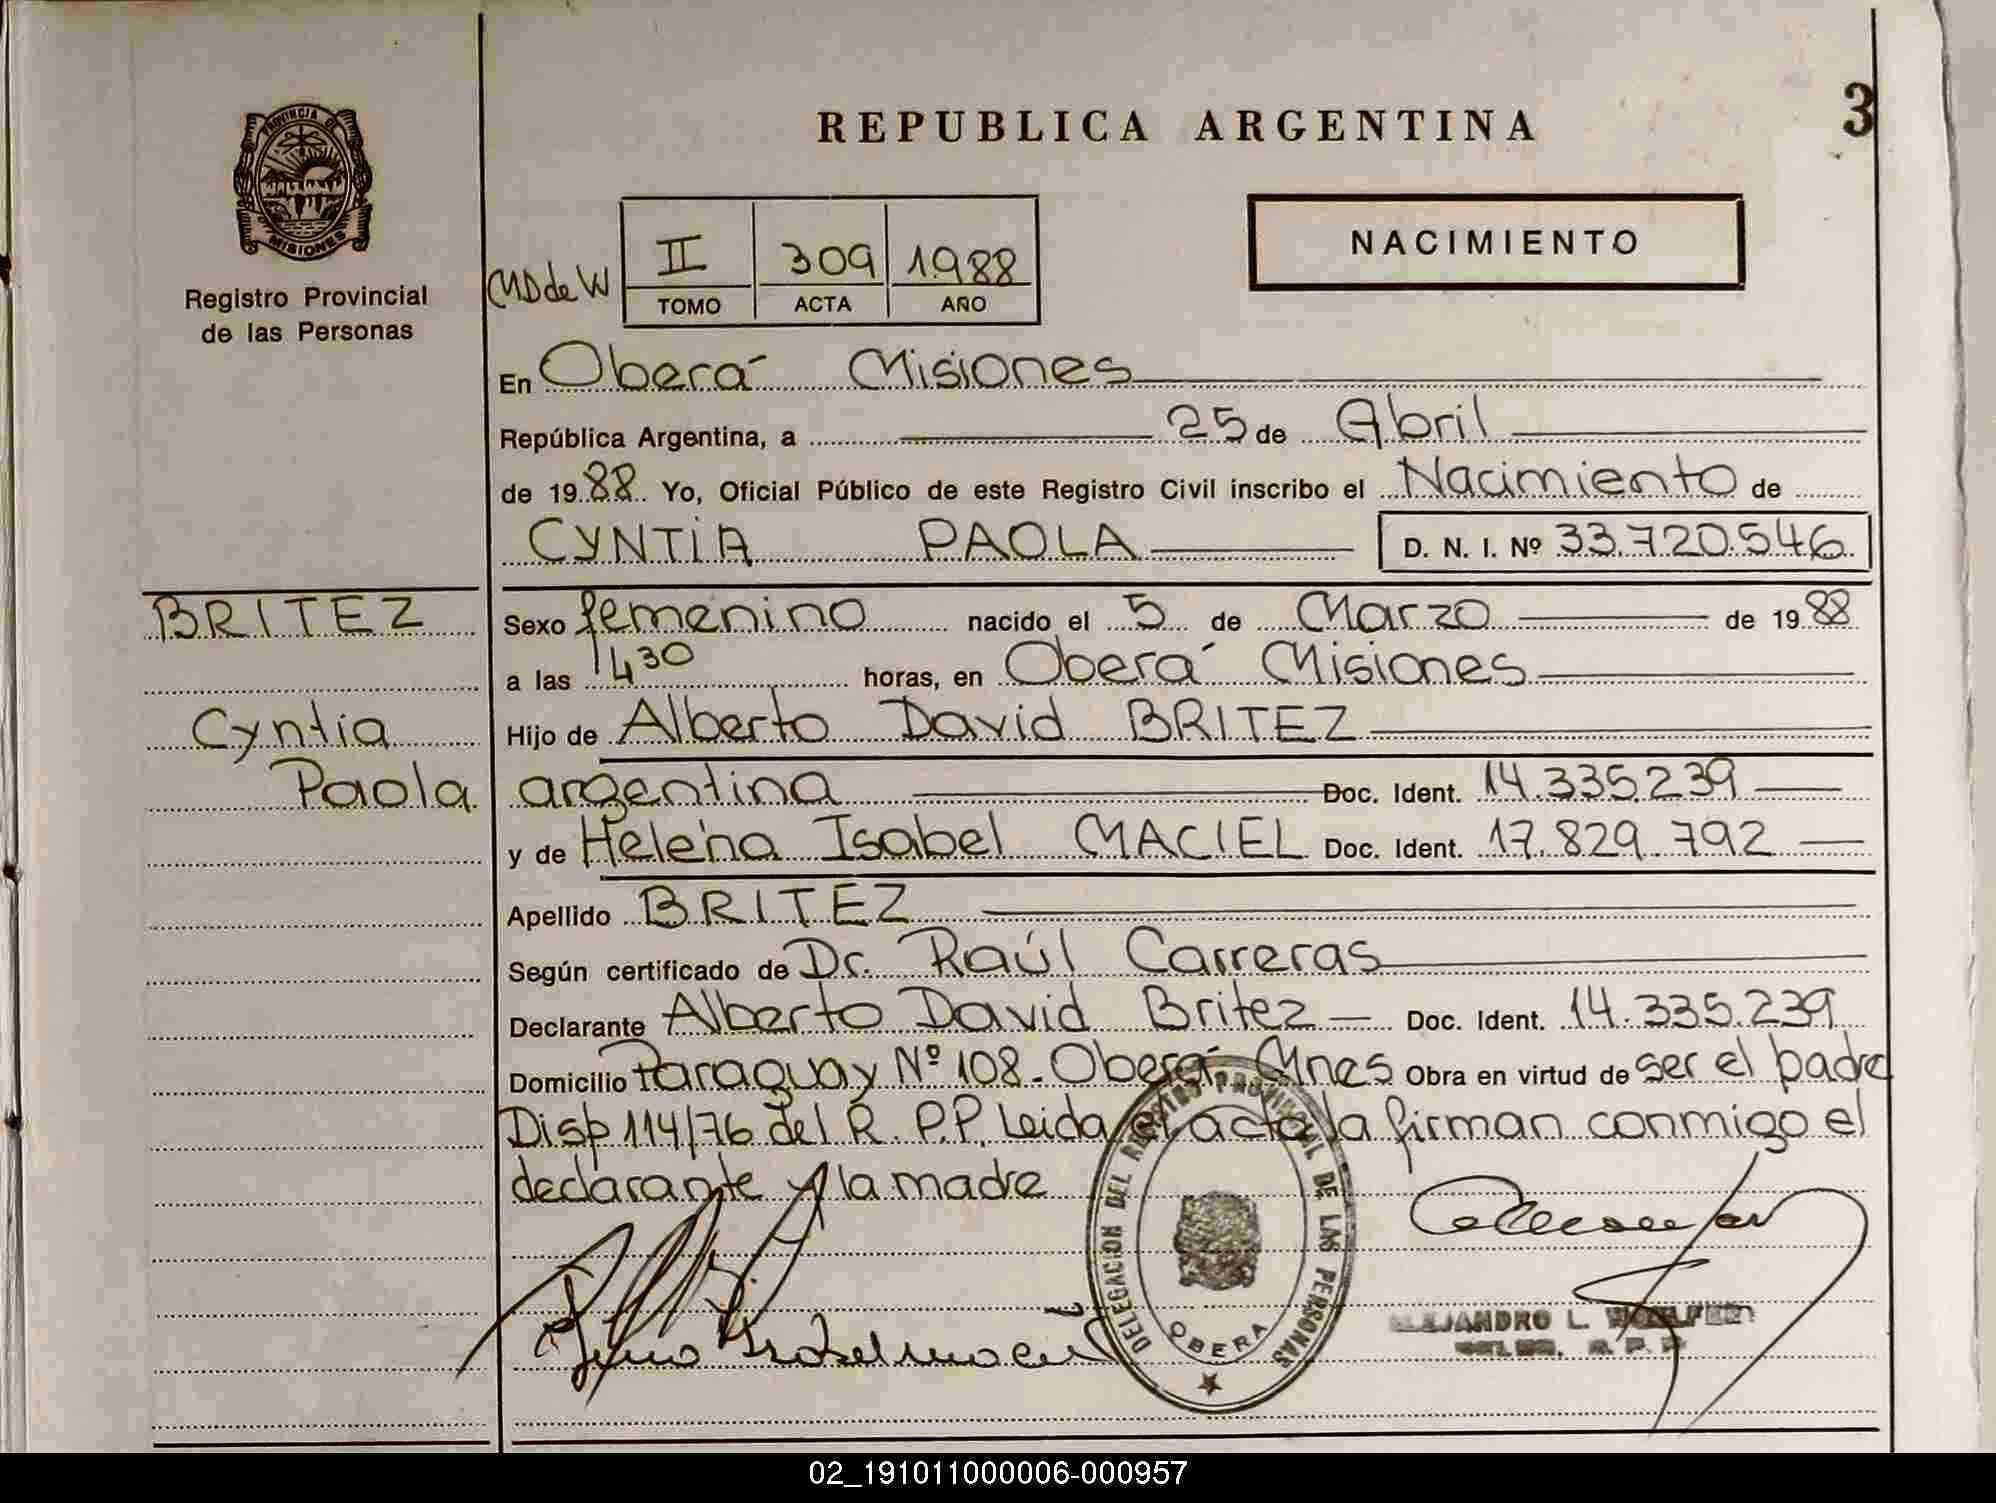 REPUBLICA ARGENTINA
3
PROVINCIA DE
MISIONES
Registro Provincial
de las Personas
MD de W
II 309 1988
TOMO ACTA AÑO
NACIMIENTO
En Oberá Misiones
República Argentina, a 25 de Abril
de 1988 Yo, Oficial Público de este Registro Civil inscribo el Nacimiento de
CYNTIA PAOLA D. N. I. Nº 33.720.546
BRITEZ
Cyntia
Paola
Sexo femenino nacido el 5 de Marzo de 1988
a las 14 30 horas, en Oberá Misiones
Hijo de Alberto David BRITEZ
argentina Doc. Ident. 14.335.239
y de Helena Isabel MACIEL Doc. Ident. 17.829.792
Apellido BRITEZ
Según certificado de Dr. Raúl Carreras
Declarante Alberto David Britez Doc. Ident. 14.335.239
Domicilio Paraguay Nº 108. Oberá Mnes Obra en virtud de ser el padre
Disp 114/76 del R. P.P. Leida el acta la firman conmigo el
declarante y la madre
DELEGACION DEL REGISTRO PROVINCIAL DE LAS PERSONAS
OBERA
ALEJANDRO L.
02_191011000006-000957